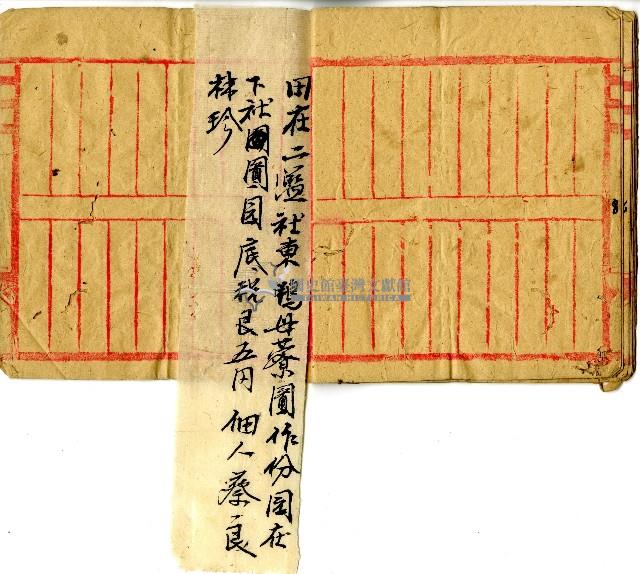 田在二濫社東鴨母藔圓作份园在
下社圓园底税艮五円 佃人蔡良
林珍
國史館臺灣文獻館
TAIWAN HISTORICA